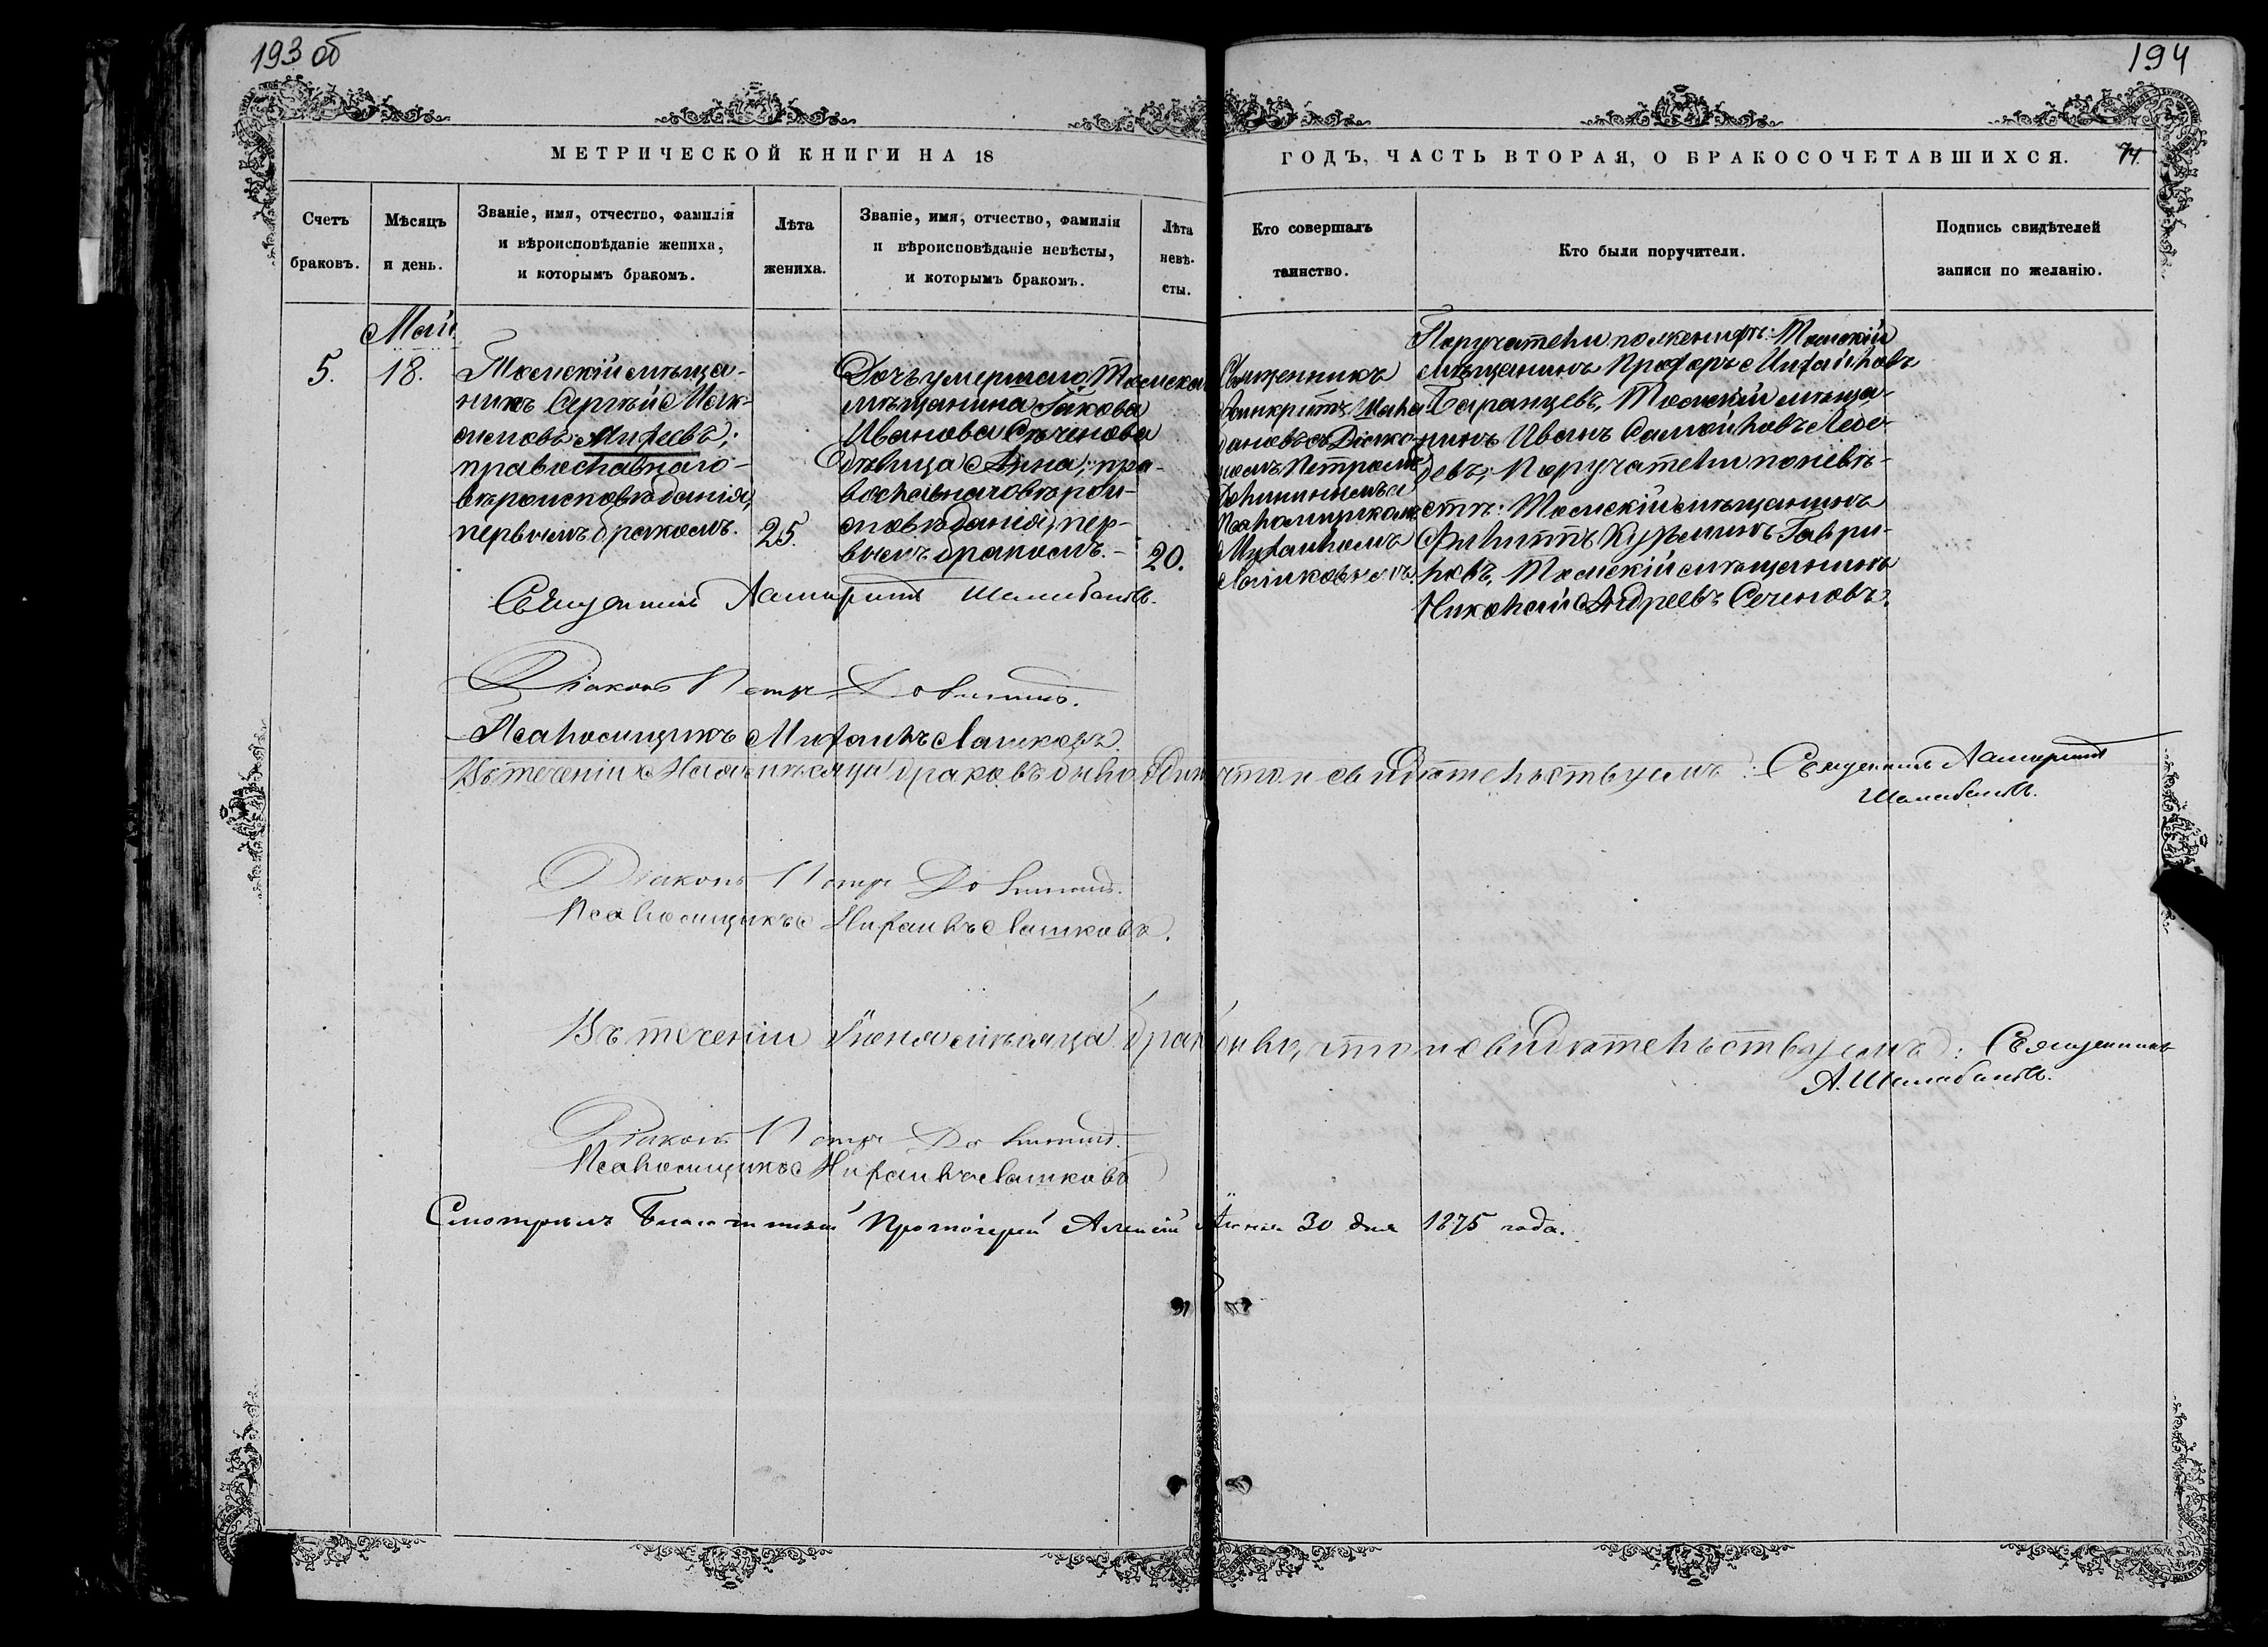 193 об
194
МЕТРИЧЕСКОЙ КНИГИ НА 18
ГОДЪ, ЧАСТЬ ВТОРАЯ, О БРАКОСОЧЕТАВШИХСЯ.
74.
Счетъ
браковъ.
Мѣсяцъ
и день.
Званіе, имя, отчество, фамилія
и вѣроисповѣданіе жениха,
и которымъ бракомъ.
Лѣта
жениха.
Званіе, имя, отчество, фамилія
и вѣроисповѣданіе невѣсты,
и которымъ бракомъ.
Лѣта
невѣ-
сты.
Кто совершалъ
таинство.
Кто были поручители.
Подпись свидѣтелей
записи по желанію.
Май
5.
18.
Томскій мѣща-
нинъ Сергѣй Мак-
симовъ Михеевъ;
православнаго
вѣроисповѣданія,
первымъ бракомъ.
25.
Дочь умершаго Томска
мѣщанина Іакова
Иванова Сѣченова
дѣвица Анна; пра-
вославнаго вѣрои-
сповѣданія, пер-
вымъ бракомъ.-
20.
Священникъ
Асинкритъ Шала
бановъ съ Діако
номъ Петромъ
и
Псаломщикомъ
Михаиломъ
Лашковымъ.
Поручатели по женихѣ: Томскій
мѣщанинъ Прохоръ Михайловъ
Баранцевъ, Томскій мѣща-
нинъ Иванъ Самойловъ Лебе-
девъ; Поручатели по невѣ-
стѣ: Томскій мѣщанинъ
Филиппъ Кузьминъ Гаври-
ловъ, Томскій мѣщанинъ
Николай Андреевъ Сеченовъ.
Священникъ Асинкритъ Шалабановъ.
Діаконъ Петръ
Псаломщикъ Михаилъ Лашковъ.
Въ теченіи Мая мѣсяца браковъ было что и свидѣтельствуемъ: Священникъ Асинкритъ
Шалабановъ.
Діаконъ Петръ
Псаломщикъ Михаилъ Лашковъ.
Въ теченіи Іюня мѣсяца было, что и свидѣтельствуемъ: Священникъ
А. Шалабановъ.
Діаконъ Петръ
Псаломщикъ Михаилъ Лашковъ
Смотрѣлъ Благочинный Протоіерей Алексій Іюня 30 дня 1875 года.